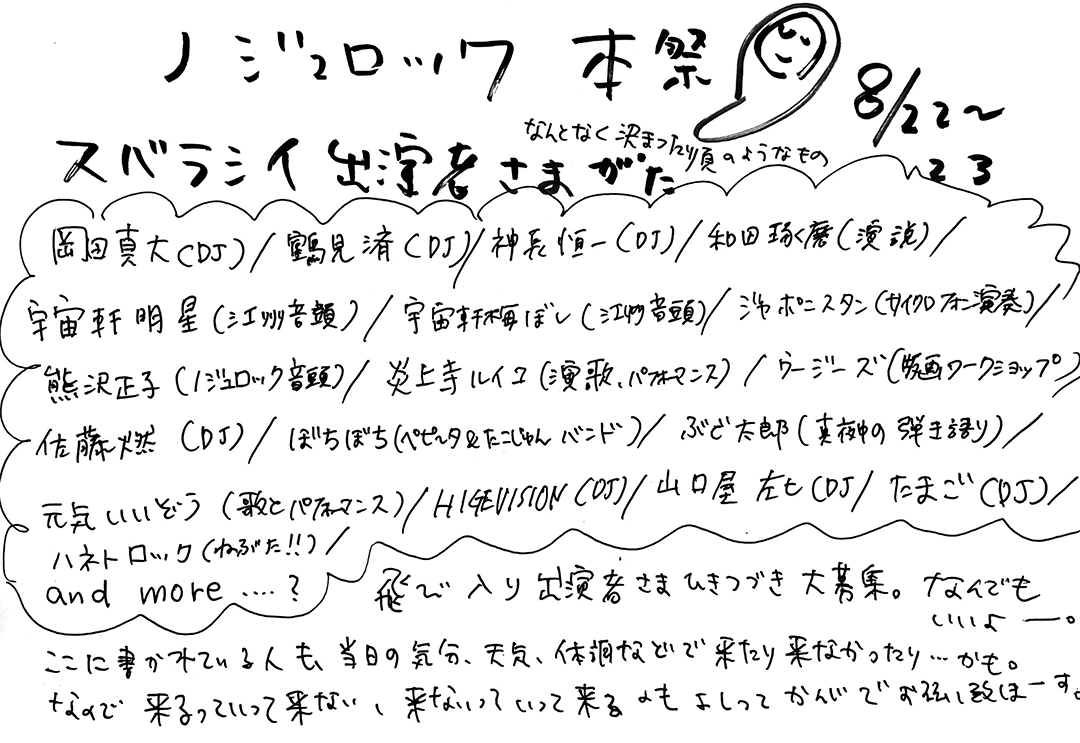 ノジュロック 本祭
8/22〜
23
スバラシイ出演者さまがた
なんとなく決まった順のようなもの
岡田真大(DJ)/鶴見済(DJ)/神長恒一(DJ)/和田琢磨(演説)/
宇宙軒明星(江州音頭)/宇宙軒梅ぼし(江州音頭)/ジャポニスタン(サイクロフォン演奏)/
熊沢正子(ノジュロック音頭)/炎上寺ルイコ(演歌、パフォーマンス)/ウージーズ(版画ワークショップ)
佐藤燃(DJ)/ぼちぼち(ペピータ&たこじゅんバンド)/ぶど太郎(真夜中の弾き語り)/
元気いいぞう(歌とパフォーマンス)/HIGEVISION(DJ)/山口屋左七(DJ)/たまご(DJ)/
ハネトロック(ねぶた!!)/
and more ....?
飛び入り出演者さまひきつづき大募集。なんでも
いいよー。
ここに書かれている人も、当日の気分、天気、体調などで来たり来なかったり…かも。
なので来るっていって来ない、来ないっていって来るのもよしってかんじでお伝え致しまーす。